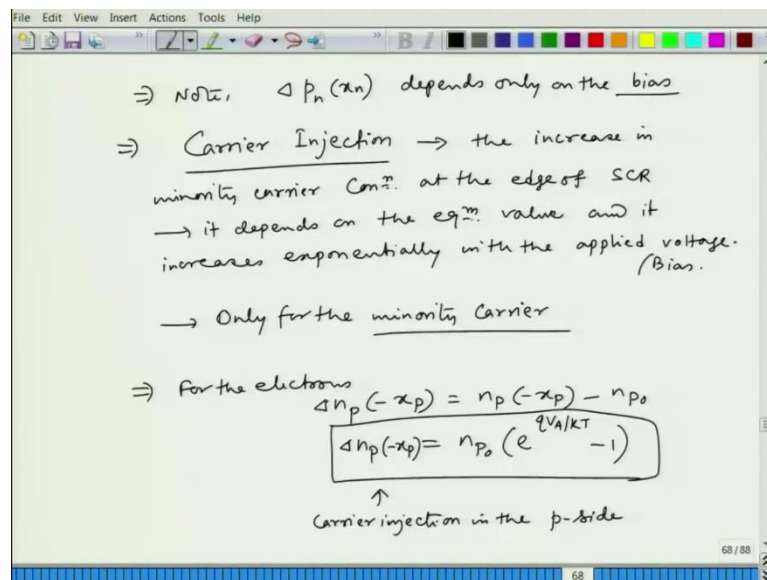 File Edit View Insert Actions Tools Help
B I
⇒ Note, Δ pn(xn) depends only on the bias
⇒ Carrier Injection → the increase in
minority carrier Conⁿ. at the edge of SCR
→ it depends on the eqᵐ. value and it
increases exponentially with the applied voltage.
/Bias.
→ Only for the minority Carrier
⇒ For the electrons
Δnp(-xp) = np(-xp) - npo
Δnp(-xp) = npo (e^qVA/KT - 1)
↑
Carrier injection in the p-side
68 / 88
68